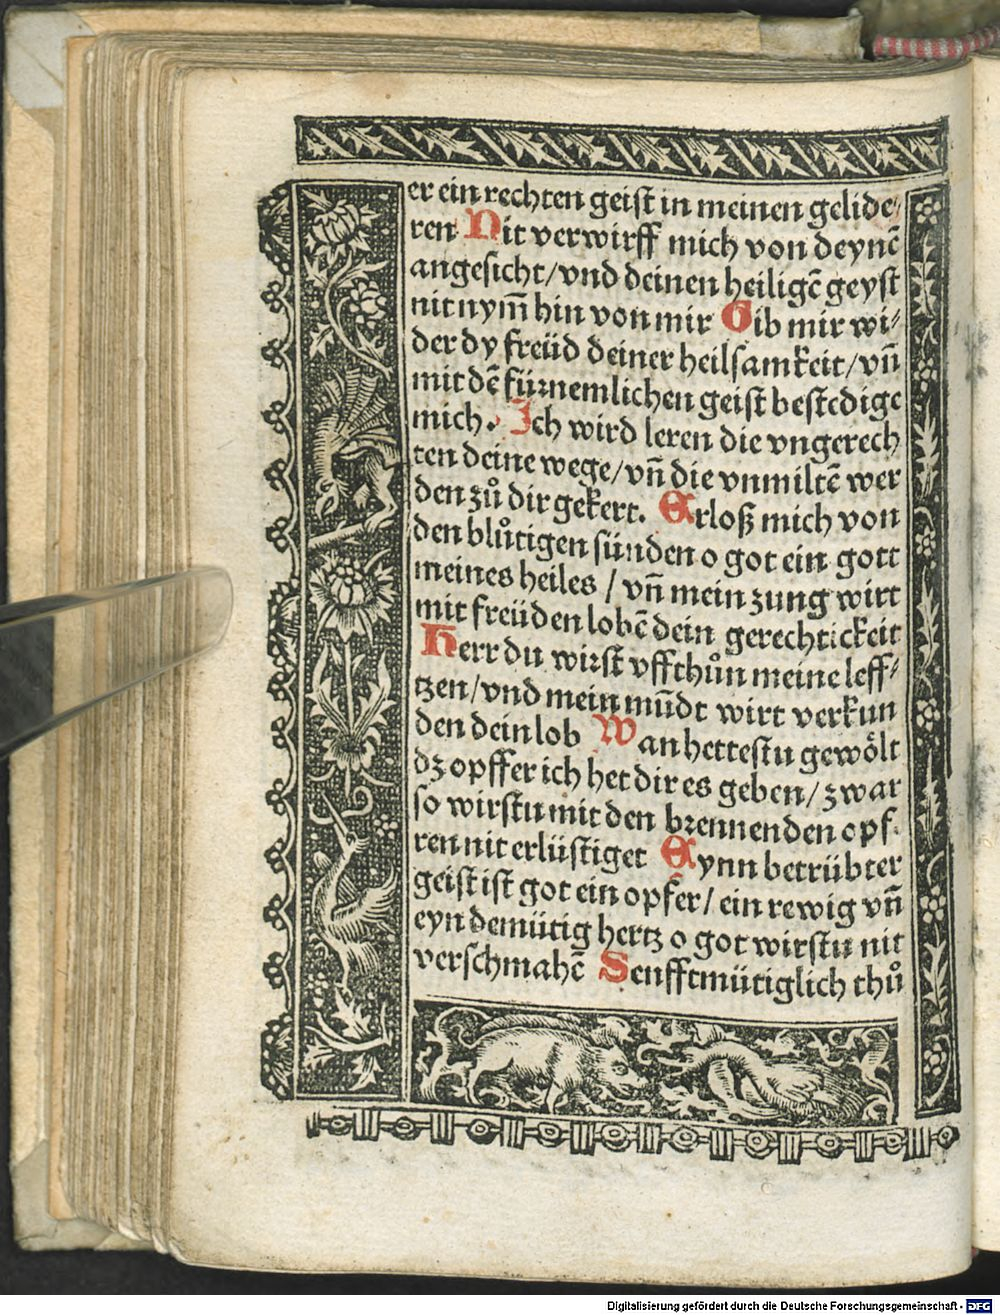 er ein rechten geist in meinen gelide⸗
ren Nit verwirff mich von deynē
angesicht/vnd deinen heiligē geyst
nit nym̄ hin von mir Gib mir wi⸗
der dy freüd deiner heilsamkeit/vn̄
mit dē fürnemlichen geist bestedige
mich. Ich wird leren die vngerech
ten deine wege/vn̄ die vnmiltē wer
den zů dir gekert. Erloß mich von
den blůtigen sünden o got ein gott
meines heiles / vn̄ mein zung wirt
mit freüden lobē dein gerechtickeit
Herr du wirst vffthůn meine leff⸗
tzen/vnd mein mūdt wirt verkun
den dein lob Wan hettestu gewölt
dz opffer ich het dir es geben/zwar
so wirstu mit den brennenden opf⸗
ren nit erlüstiget Eynn betrübter
geist ist got ein opfer/ein rewig vn̄
eyn demütig hertz o got wirstu nit
verschmahē Senfftmütiglich thů
Digitalisierung gefördert durch die Deutsche Forschungsgemeinschaft - DFG